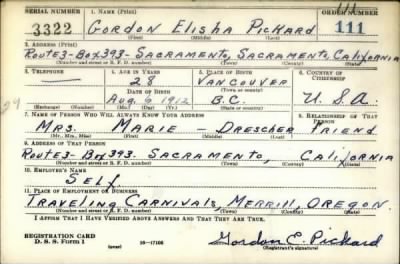 SERIAL NUMBER 1. NAME (Print) ORDER NUMBER
3322 GORDON ELISHA PICKARD 111
(First) (Middle) (Last)
2. ADDRESS (Print)
ROUTE 3-BOX 393-SACRAMENTO, SACRAMENTO, CALIFORNIA
(Number and street or R. F. D. number) (Town) (County) (State)
3. TELEPHONE 4. AGE IN YEARS 5. PLACE OF BIRTH 6. COUNTRY OF CITIZENSHIP
28 VANCOUVER
(Town or county)
DATE OF BIRTH
AUG. 6 1912 B.C. U.S.A.
(Exchange) (Number) (Mo.) (Day) (Yr.) (State or country)
7. NAME OF PERSON WHO WILL ALWAYS KNOW YOUR ADDRESS 8. RELATIONSHIP OF THAT PERSON
MRS. MARIE - DRESCHER FRIEND
(Mr., Mrs., Miss) (First) (Middle) (Last)
9. ADDRESS OF THAT PERSON
ROUTE 3-BOX 393. SACRAMENTO, CALIFORNIA
(Number and street or R. F. D. number) (Town) (County) (State)
10. EMPLOYER'S NAME
SELF
11. PLACE OF EMPLOYMENT OR BUSINESS
TRAVELING CARNIVALS, MERRILL, OREGON.
(Number and street or R. F. D. number) (Town) (County) (State)
I AFFIRM THAT I HAVE VERIFIED ABOVE ANSWERS AND THAT THEY ARE TRUE.
REGISTRATION CARD
D. S. S. Form 1 (over) 16-17105 Gordon E. Pickard
(Registrant's signature)